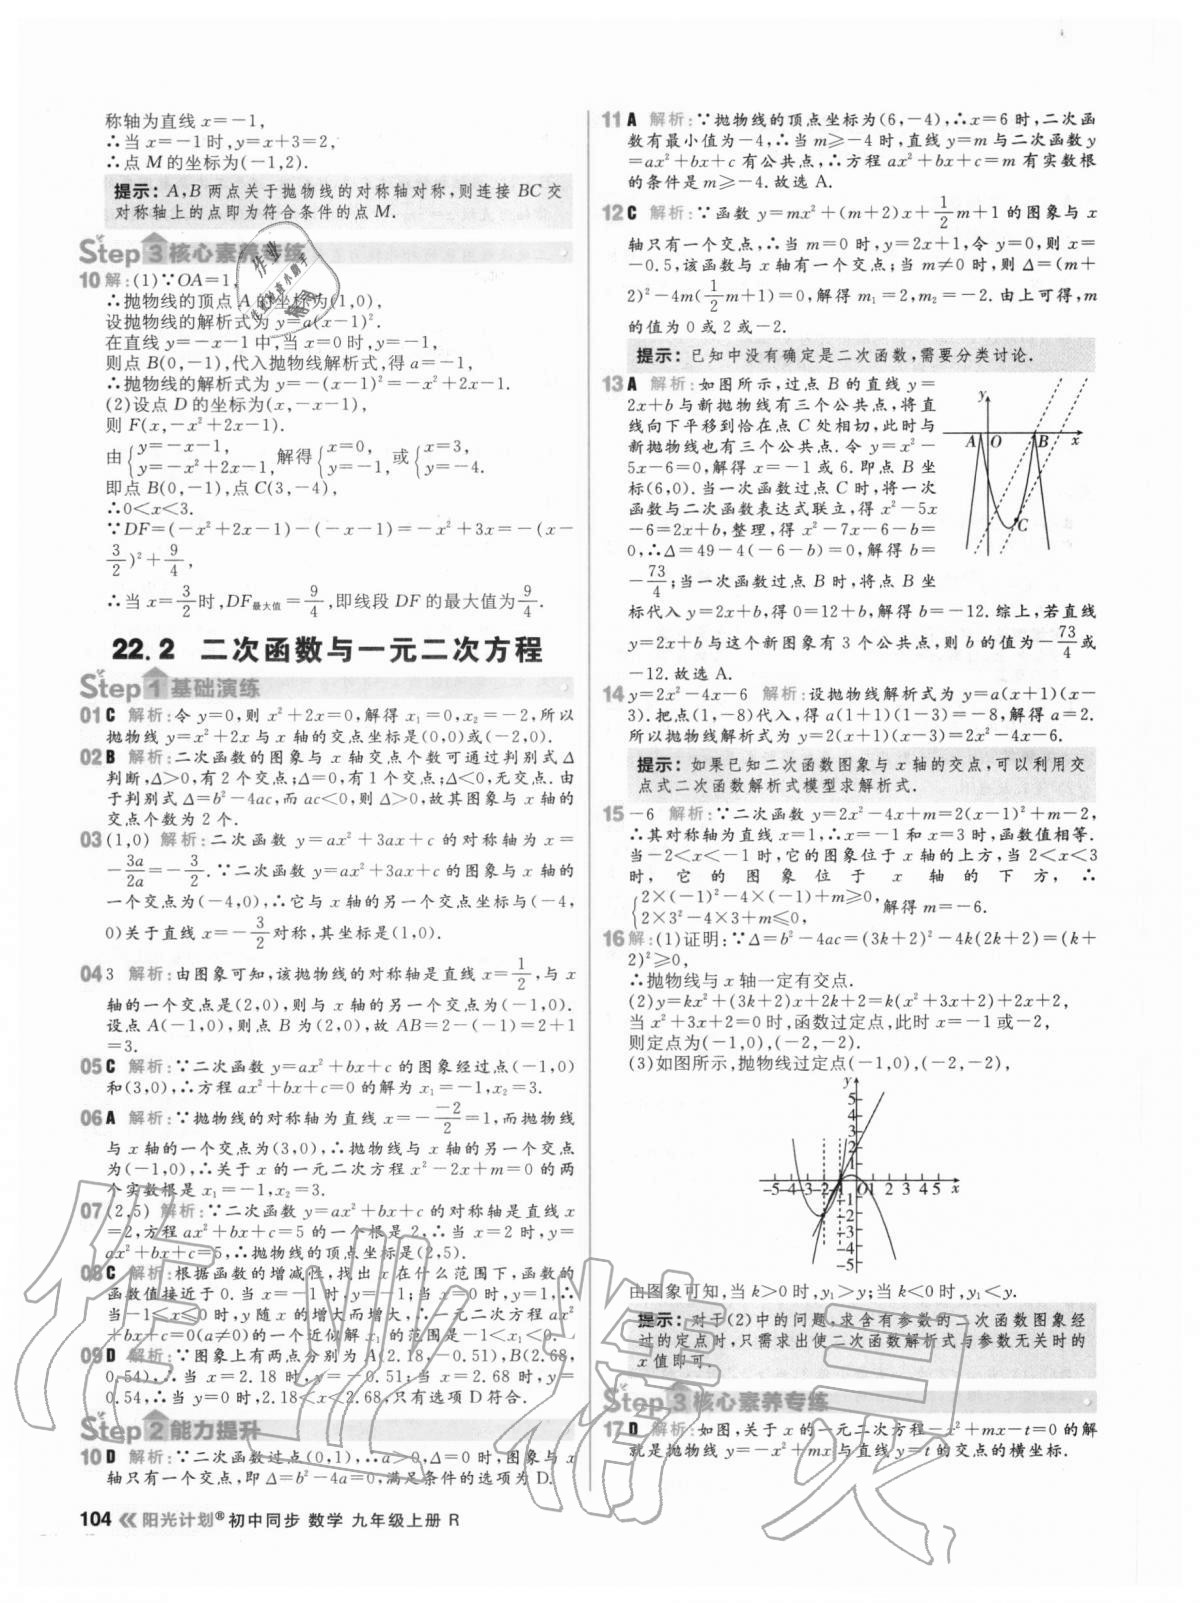 称轴为直线x=-1,
∴当x=-1时,y=x+3=2,
∴点M的坐标为(-1,2).
提示:A,B两点关于抛物线的对称轴对称,则连接BC交
对称轴上的点即为符合条件的点M.
Step 3 核心素养专练
10 解:(1)∵OA=1,
∴抛物线的顶点A的坐标为(1,0),
设抛物线的解析式为y=a(x-1)².
在直线y=-x-1中,当x=0时,y=-1,
则点B(0,-1),代入抛物线解析式,得a=-1,
∴抛物线的解析式为y=-(x-1)²=-x²+2x-1.
(2)设点D的坐标为(x,-x-1),
则F(x,-x²+2x-1).
由{y=-x-1, y=-x²+2x-1, 解得{x=0, y=-1, 或{x=3, y=-4.
即点B(0,-1),点C(3,-4),
∴0<x<3.
∵DF=(-x²+2x-1)-(-x-1)=-x²+3x=-(x-
3/2)²+9/4,
∴当x=3/2时,DF最大值=9/4,即线段DF的最大值为9/4.
22.2 二次函数与一元二次方程
Step 1 基础演练
01 C 解析:令y=0,则x²+2x=0,解得x₁=0,x₂=-2,所以
抛物线y=x²+2x与x轴的交点坐标是(0,0)或(-2,0).
02 B 解析:二次函数的图象与x轴交点个数可通过判别式Δ
判断,Δ>0,有2个交点;Δ=0,有1个交点;Δ<0,无交点.由
于判别式Δ=b²-4ac,而ac<0,则Δ>0,故其图象与x轴的
交点个数为2个.
03 (1,0) 解析:二次函数y=ax²+3ax+c的对称轴为x=
-3a/2a=-3/2.∵二次函数y=ax²+3ax+c的图象与x轴的
一个交点为(-4,0),∴它与x轴的另一个交点坐标与(-4,
0)关于直线x=-3/2对称,其坐标是(1,0).
04 3 解析:由图象可知,该抛物线的对称轴是直线x=1/2,与x
轴的一个交点是(2,0),则与x轴的另一个交点为(-1,0).
设点A(-1,0),则点B为(2,0),故AB=2-(-1)=2+1
=3.
05 C 解析:∵二次函数y=ax²+bx+c的图象经过点(-1,0)
和(3,0),∴方程ax²+bx+c=0的解为x₁=-1,x₂=3.
06 A 解析:∵抛物线的对称轴为直线x=--2/2=1,而抛物线
与x轴的一个交点为(3,0),∴抛物线与x轴的另一个交点
为(-1,0),∴关于x的一元二次方程x²-2x+m=0的两
个实数根是x₁=-1,x₂=3.
07 (2,5) 解析:∵二次函数y=ax²+bx+c的对称轴是直线x
=2,方程ax²+bx+c=5的一个根是2,∴当x=2时,y=
ax²+bx+c=5,∴抛物线的顶点坐标是(2,5).
08 C 解析:根据函数的增减性,找出x在什么范围下,函数的
函数值接近于0.当x=-1时,y=-1;当x=0时,y=1,∴
当-1<x≤0时,y随x的增大而增大,∴一元二次方程ax²
+bx+c=0(a≠0)的一个近似解x₁的范围是-1<x₁<0.
09 D 解析:∵图象上有两点分别为A(2.18,-0.51),B(2.68,
0.54),∴当x=2.18时,y=-0.51;当x=2.68时,y=
0.54,∴当y=0时,2.18<x<2.68,只有选项D符合.
Step 2 能力提升
10 D 解析:∵二次函数过点(0,1),∴a>0,Δ=0时,图象与x
轴只有一个交点,即Δ=b²-4a=0,满足条件的选项为D.
104 《 阳光计划® 初中同步 数学 九年级上册 R
11 A 解析:∵抛物线的顶点坐标为(6,-4),∴x=6时,二次函
数有最小值为-4,∴当m≥-4时,直线y=m与二次函数y
=ax²+bx+c有公共点,∴方程ax²+bx+c=m有实数根
的条件是m≥-4.故选A.
12 C 解析:∵函数y=mx²+(m+2)x+1/2m+1的图象与x
轴只有一个交点,∴当m=0时,y=2x+1,令y=0,则x=
-0.5,该函数与x轴有一个交点;当m≠0时,则Δ=(m+
2)²-4m(1/2m+1)=0,解得m₁=2,m₂=-2.由上可得,m
的值为0或2或-2.
提示:已知中没有确定是二次函数,需要分类讨论.
13 A 解析:如图所示,过点B的直线y=
2x+b与新抛物线有三个公共点,将直
线向下平移到恰在点C处相切,此时与
新抛物线也有三个公共点.令y=x²-
5x-6=0,解得x=-1或6.即点B坐
标(6,0).当一次函数过点C时,将一次
函数与二次函数表达式联立,得x²-5x
-6=2x+b,整理,得x²-7x-6-b=
0,∴Δ=49-4(-6-b)=0,解得b=
-73/4;当一次函数过点B时,将点B坐
标代入y=2x+b,得0=12+b,解得b=-12.综上,若直线
y=2x+b与这个新图象有3个公共点,则b的值为-73/4或
-12.故选A.
y
A O B x
C
14 y=2x²-4x-6 解析:设抛物线解析式为y=a(x+1)(x-
3).把点(1,-8)代入,得a(1+1)(1-3)=-8,解得a=2.
所以抛物线解析式为y=2(x+1)(x-3)=2x²-4x-6.
提示:如果已知二次函数图象与x轴的交点,可以利用交
点式二次函数解析式模型求解析式.
15 -6 解析:∵二次函数y=2x²-4x+m=2(x-1)²+m-2,
∴其对称轴为直线x=1,∴x=-1和x=3时,函数值相等.
当-2<x<-1时,它的图象位于x轴的上方,当2<x<3
时,它的图象位于x轴的下方,∴
{2×(-1)²-4×(-1)+m≥0, 2×3²-4×3+m≤0, 解得m=-6.
16 解:(1)证明:∵Δ=b²-4ac=(3k+2)²-4k(2k+2)=(k+
2)²≥0,
∴抛物线与x轴一定有交点.
(2)y=kx²+(3k+2)x+2k+2=k(x²+3x+2)+2x+2,
当x²+3x+2=0时,函数过定点,此时x=-1或-2,
则定点为(-1,0),(-2,-2).
(3)如图所示,抛物线过定点(-1,0),(-2,-2),
y
5
4
3
2
1
-5-4-3-2-1 O1 2 3 4 5 x
-1
-2
-3
-4
-5
由图象可知,当k>0时,y₁>y;当k<0时,y₁<y.
提示:对于(2)中的问题,求含有参数的二次函数图象经
过的定点时,只需求出使二次函数解析式与参数无关时的
x值即可.
Step 3 核心素养专练
17 D 解析:如图,关于x的一元二次方程-x²+mx-t=0的解
就是抛物线y=-x²+mx与直线y=t的交点的横坐标.
作业精灵